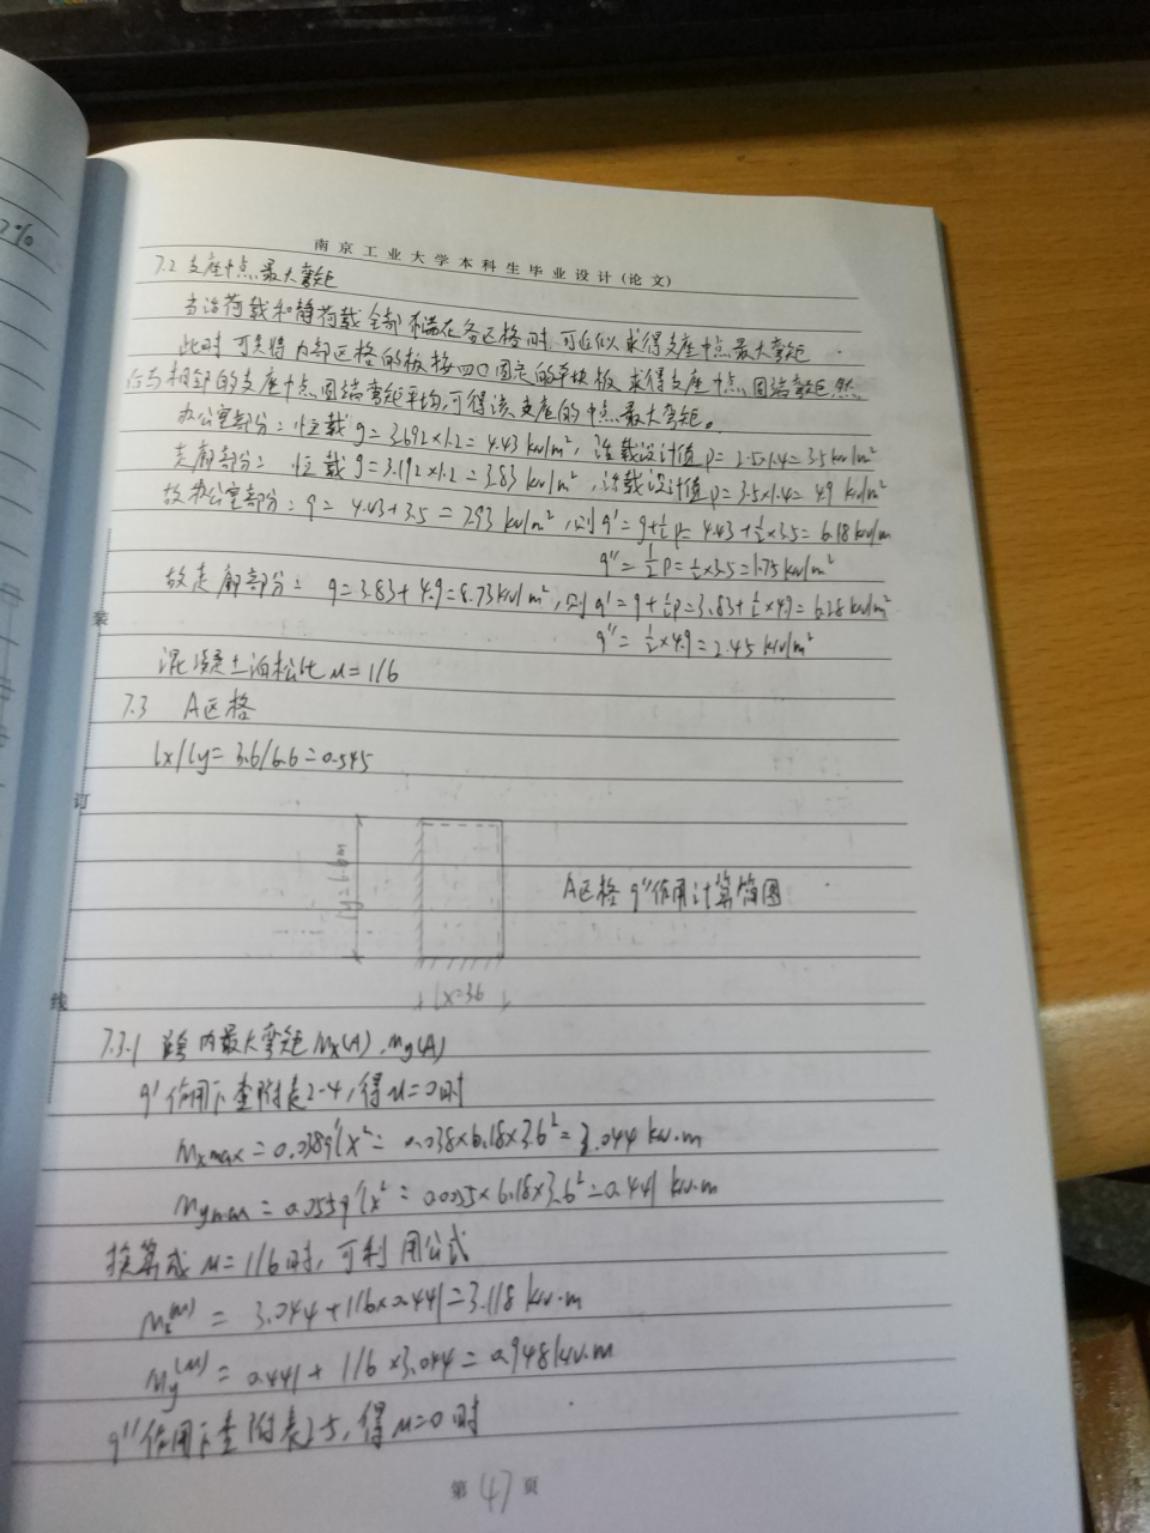 2%
南京工业大学本科生毕业设计(论文)
7.2 支座中点最大弯矩
当活荷载和静荷载全部布满在各区格时,可近似求得支座中点最大弯矩
此时可先将内部区格的板按四口固定的单块板求得支座中点固端弯矩,然
后与相邻的支座中点固端弯矩平均,可得该支座的中点最大弯矩。
办公室部分: 恒载 g=3.692×1.2=4.43 kN/m², 活载设计值 p=2.5×1.4=3.5 kN/m²
走廊部分: 恒载 g=3.192×1.2=3.83 kN/m², 活载设计值 p=3.5×1.4=4.9 kN/m²
故办公室部分: q=4.43+3.5=7.93 kN/m², 则 q'=g+½p=4.43+½×3.5=6.18 kN/m
q''=½p=½×3.5=1.75 kN/m²
故走廊部分: q=3.83+4.9=8.73 kN/m², 则 q'=g+½p=3.83+½×4.9=6.28 kN/m²
q''=½×4.9=2.45 kN/m²
混凝土泊松比 μ=1/6
7.3 A区格
lx/ly=3.6/6.6=0.545
ly=6.6m
A区格 q''作用计算简图
lx=3.6
7.3.1 跨内最大弯矩 Mx(A), My(A)
q'作用下查附表2-4,得μ=0时
Mxmax=0.038q'lx²=0.038×6.18×3.6²=3.044 kN·m
Mymax=0.055q'lx²=0.0055×6.18×3.6²=0.441 kN·m
换算成μ=1/6时,可利用公式
Mx(μ)=3.044+1/6×0.441=3.118 kN·m
My(μ)=0.441+1/6×3.044=0.948 kN·m
q''作用下查附表2-5,得μ=0时
装
订
线
第 47 页